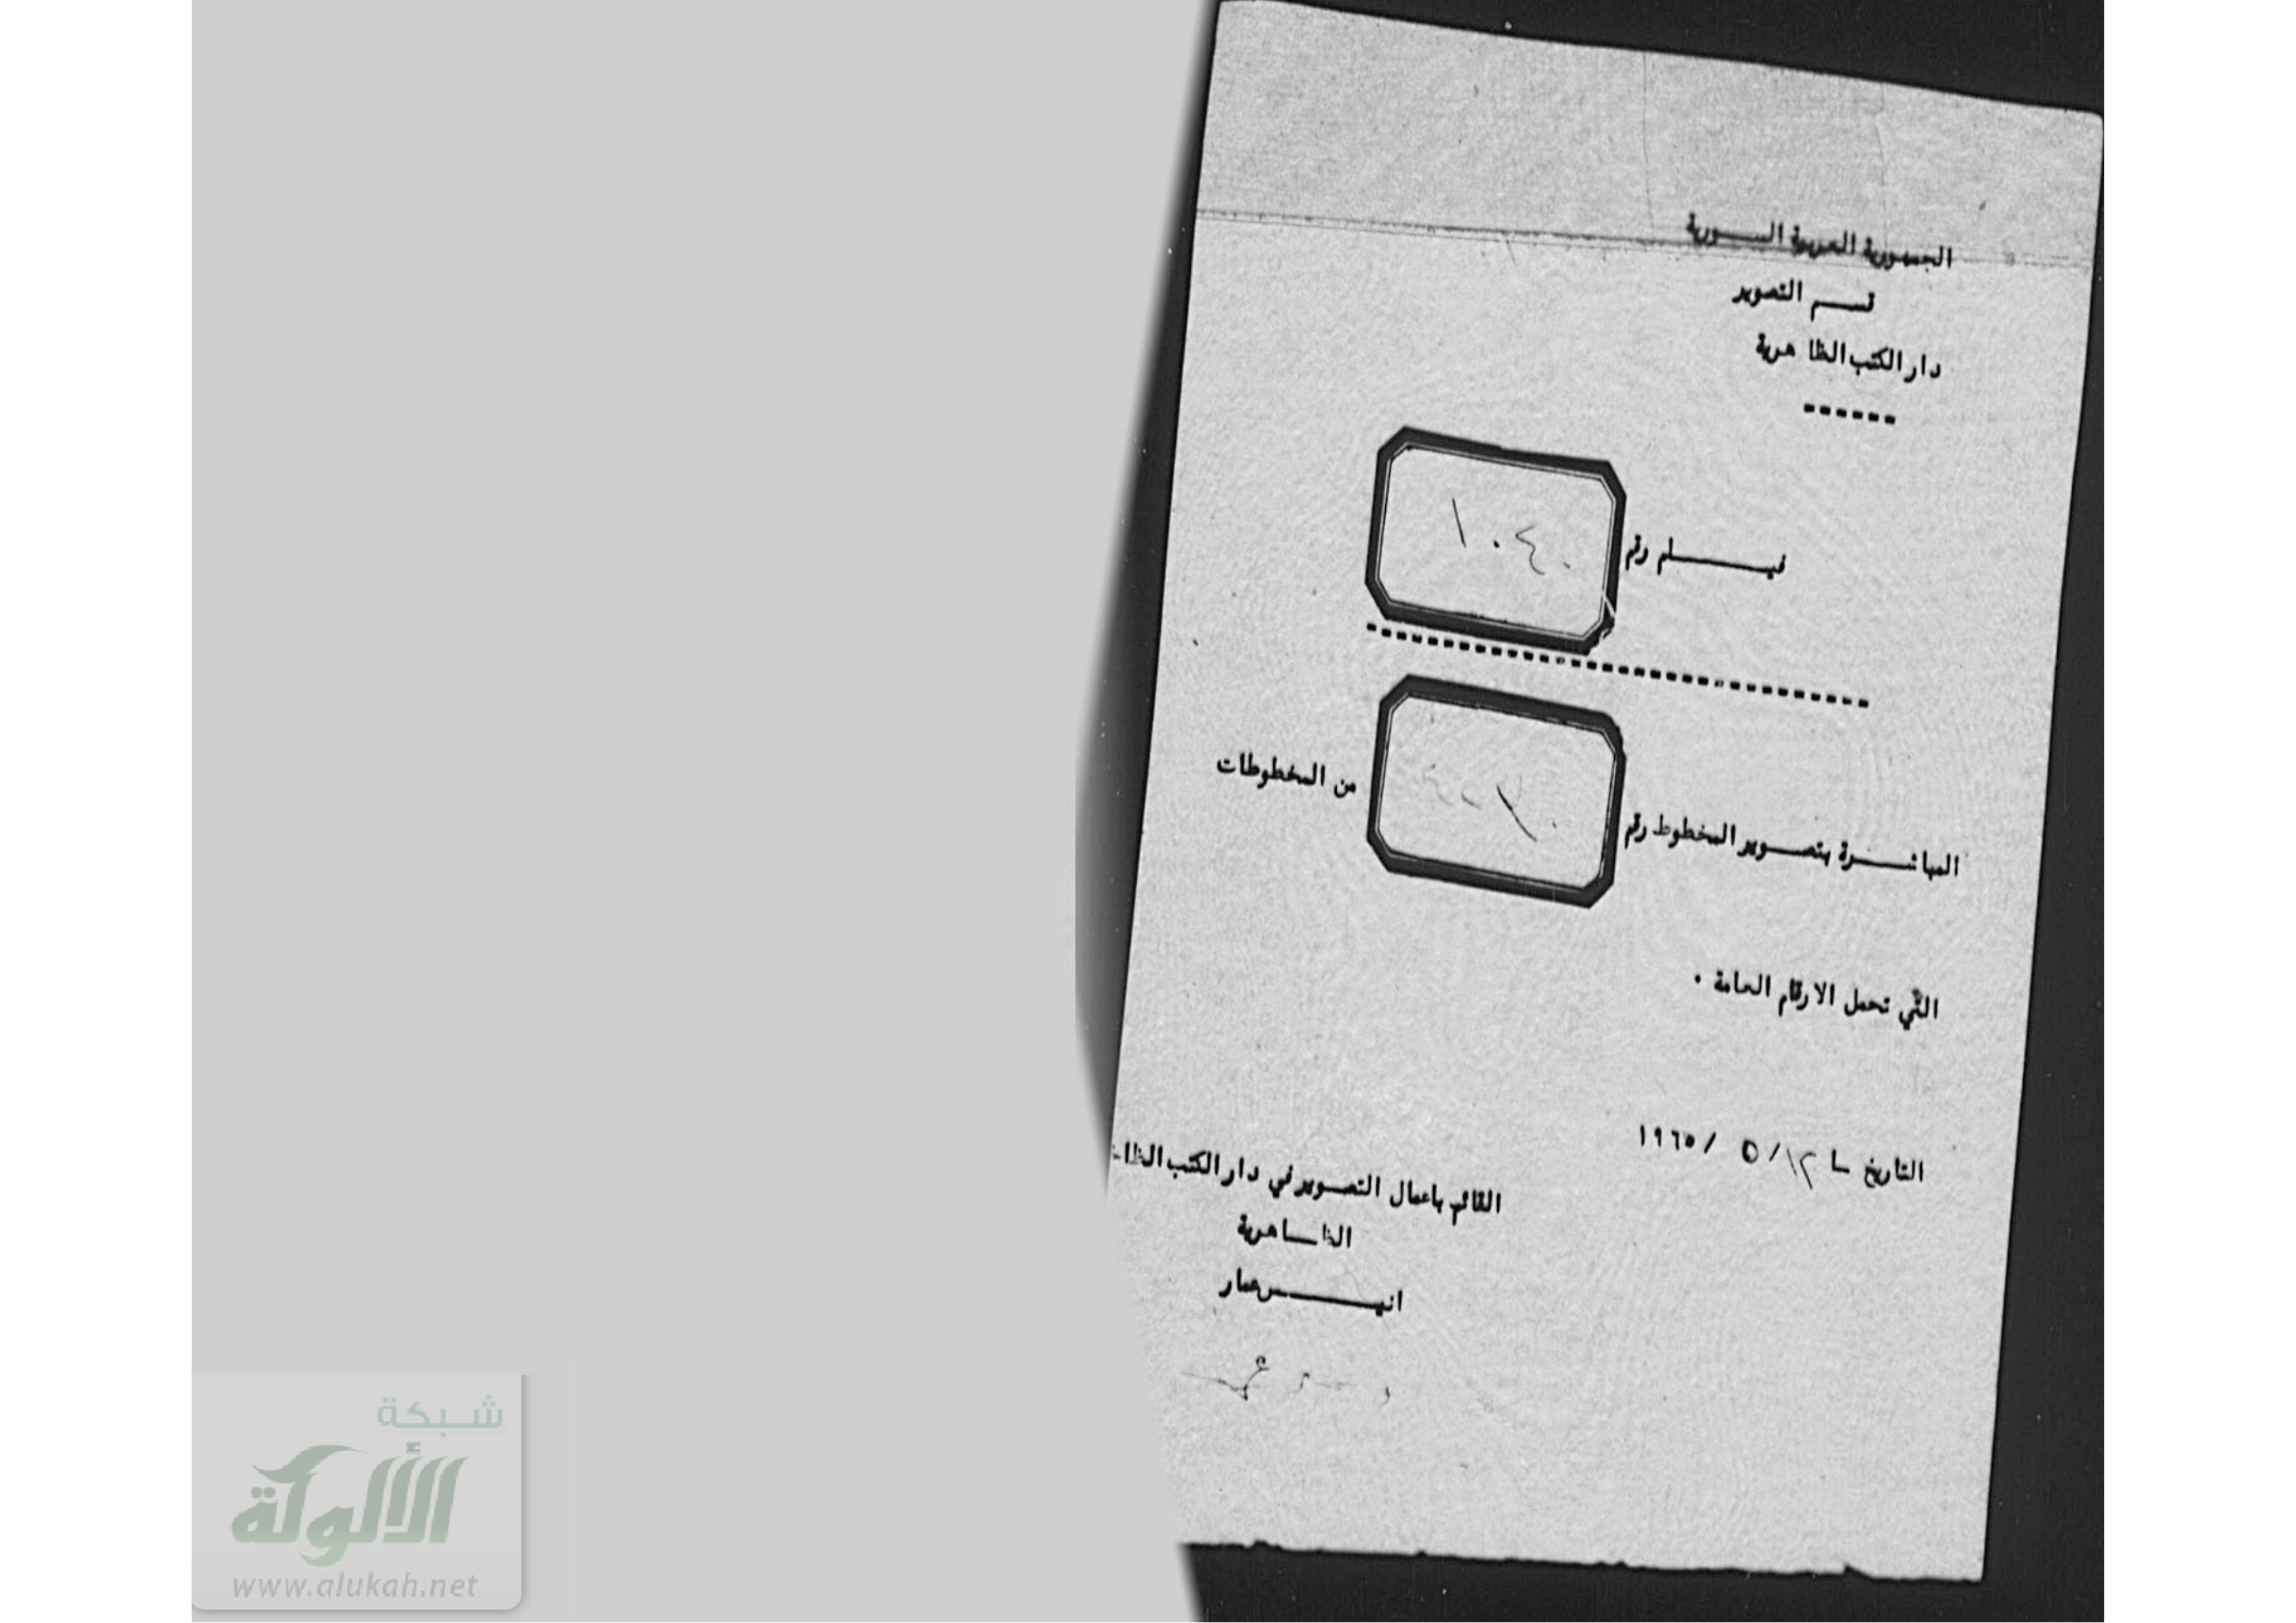 الجمهورية العربية السورية
قسم التصوير
دار الكتب الظاهرية
فيلم رقم ١٠٤٠
المباشرة بتصوير المخطوط رقم من المخطوطات
التي تحمل الارقام العامة ٠
التاريخ ١٢/ ٥ /١٩٦٥
القائم باعمال التصوير في دار الكتب
الظاهرية
انيس عمار
شبكة
الألوكة
www.alukah.net